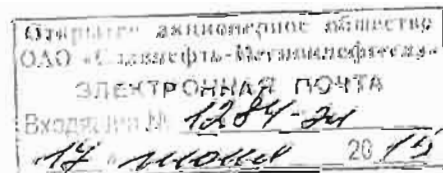 Открытое акционерное общество
ОАО «Славнефть-Мегионнефтегаз»
ЭЛЕКТРОННАЯ ПОЧТА
Входящий № 1284-эл
17 июня 2015